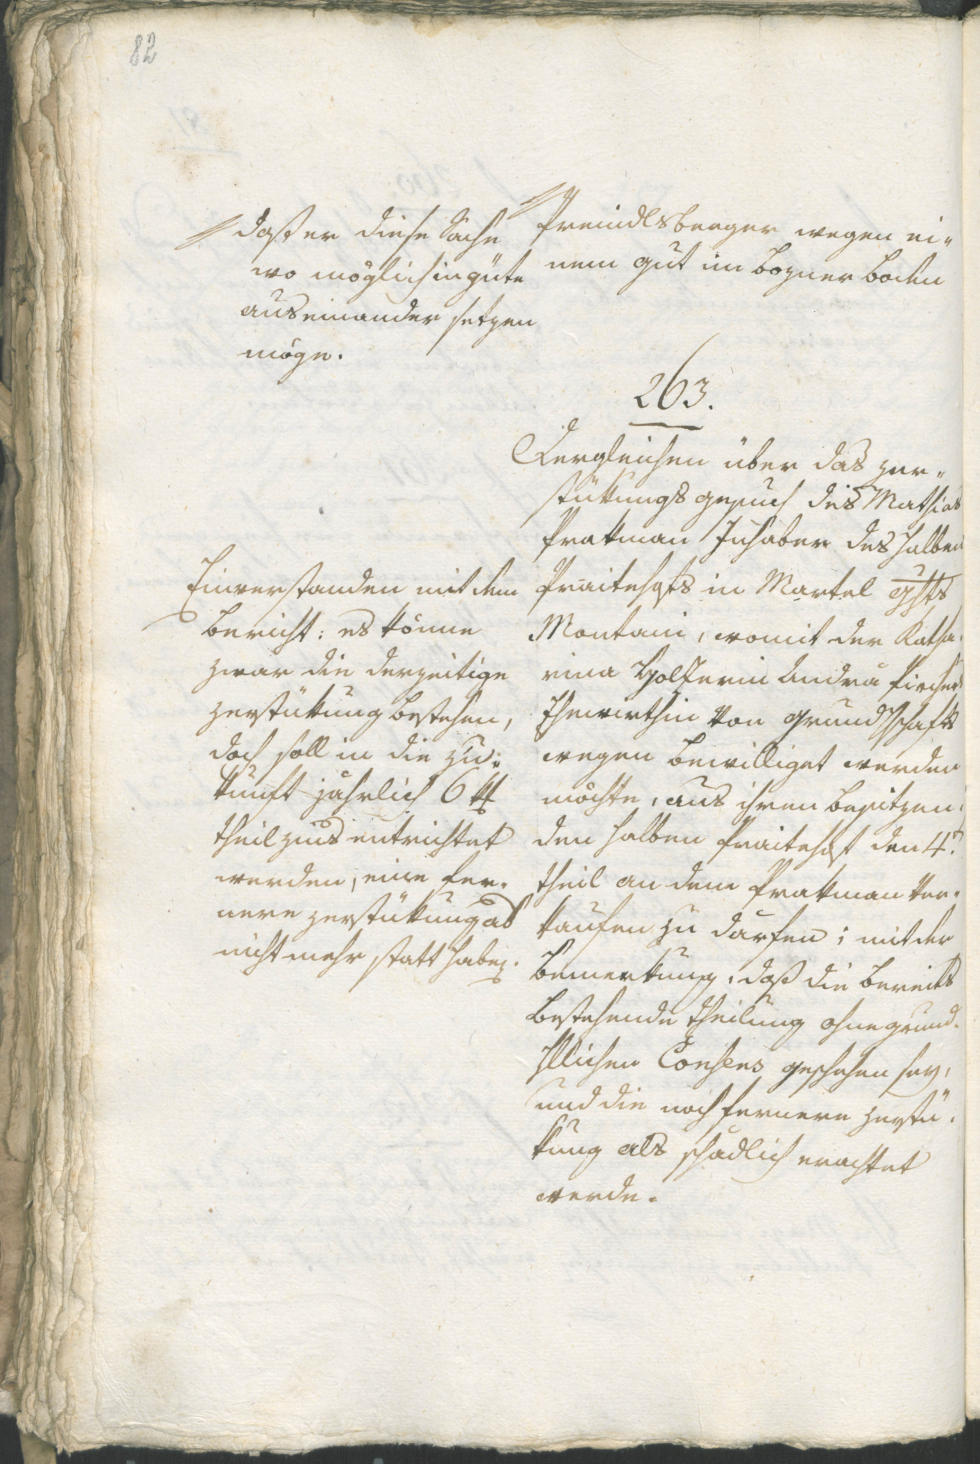 82
daß er diese Sache
wo möglich in güte
auseinander setzen
möge.
Preindlsberger wegen ei-
nem gut im Bozner Boden
263.
Dergleichen über das zer-
stükungs gesuch des Mathias
Pratman Inhaber des halben
Praitehofs in Martel Ghts
Montani, womit der Katha-
rina Holzerin Andrä Pircher
Ehewirthin von Grundhschafts
wegen bewilliget werden
möchte, aus ihren besitzen-
den halben Praitehof den 4t.
theil an dem Pratman ver-
kaufen zu därfen; mit der
bemerkung, daß die bereits
bestehende theilung ohne grund-
hlichen Consens geschehen sey,
und die noch fernere zerstü-
kung als schädlich erachtet
werde.
Einverstanden mit dem
bericht: es könne
zwar die derzeitige
zerstükung bestehen,
doch soll in die Zu-
kunft jährlich 6 kr
theilzins entrichtet
werden, eine fer-
nere zerstükung ab
nicht mehr statt haben.